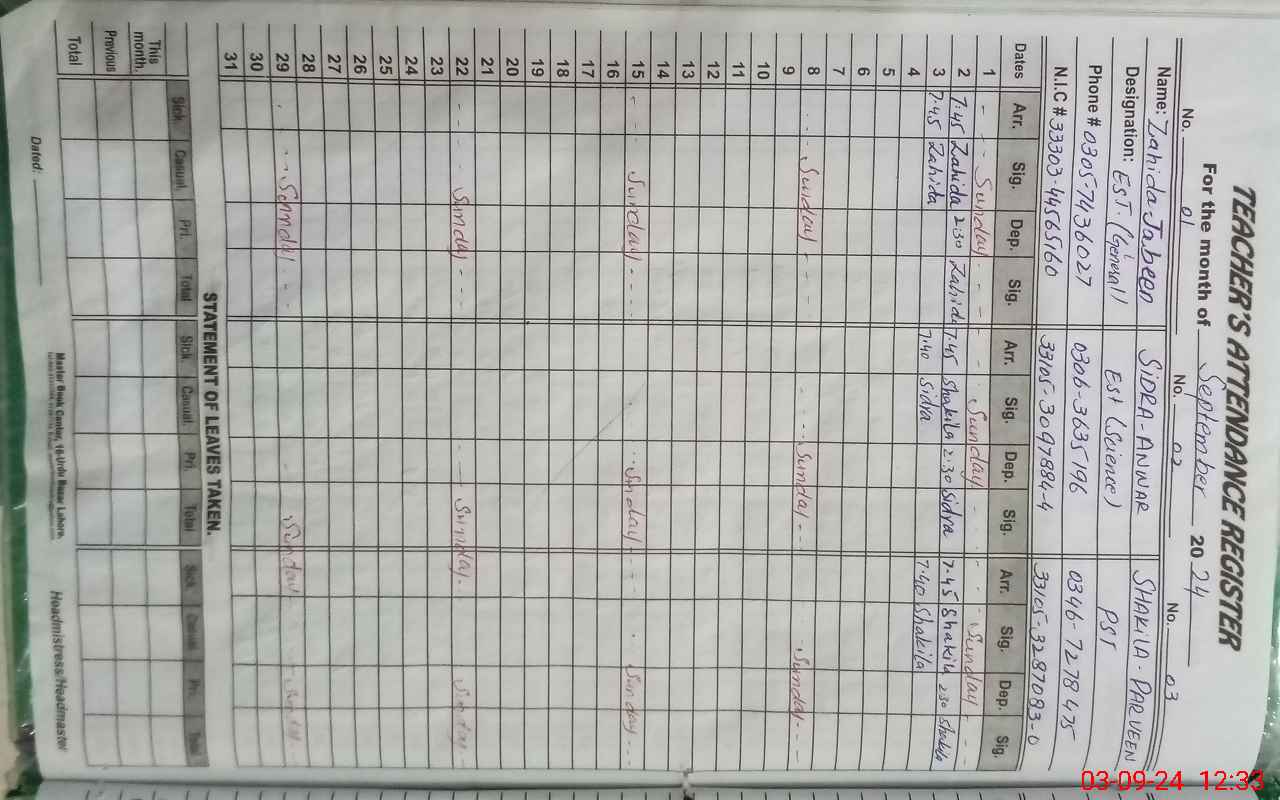 TEACHER'S ATTENDANCE REGISTER
For the month of September 2024
No. 01 No. 02 No. 03
Name: Zahida Jabeen SIDRA-ANWAR SHAKILA-PARVEEN
Designation: EST.(General) Est (Science) PST
Phone # 0305-7436027 0306-3635196 0346-7278475
N.I.C # 33303-4456516 0 33105-3097884-4 33105-3287083-0
Dates Arr. Sig. Dep. Sig. Arr. Sig. Dep. Sig. Arr. Sig. Dep. Sig.
1 - - - Sunday - - - Sunday - - - Sunday - -
2 7:45 Zahida 2:30 Zahida 7:45 Shakila 2:30 Sidra 7:45 Shakila 2:30 Shakila
3 7:45 Zahida 7:40 Sidra 7:40 Shakila
4
5
6
7
8 Sunday - - - Sunday - - - Sunday - - -
9
10
11
12
13
14
15 - - - Sunday - - - - Sunday - - - Sunday - - -
16
17
18
19
20
21
22 - - - Sunday - - - Sunday - - Sunday - -
23
24
25
26
27
28
29 Sunday - - - Sunday Sunday
30
31
STATEMENT OF LEAVES TAKEN.
Sick. Casual. Pri. Total Sick. Casual. Pri. Total Sick. Casual. Pri. Total
This month.
Previous
Total
Dated:
Master Book Center, 16-Urdu Bazar Lahore.
Headmistress/Headmaster
03-09-24 12:33